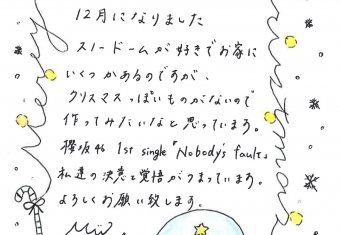 12月になりました
スノードームが好きでお家に
いくつかあるのですが、
クリスマスっぽいものがないので
作ってみたいなと思っています。
櫻坂46 1st single「Nobody's fault」
私達の決意と覚悟がつまっています。
よろしくお願い致します。
Merry